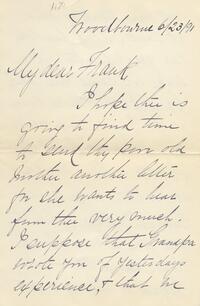 Woodbourne 6/23/91
My dear Frank
I hope thee is
going to find time
to send thy poor old
Mother another letter
for she wants to hear
from thee very much.
I suppose that Grandpa
wrote you of yesterdays
experience, & that we